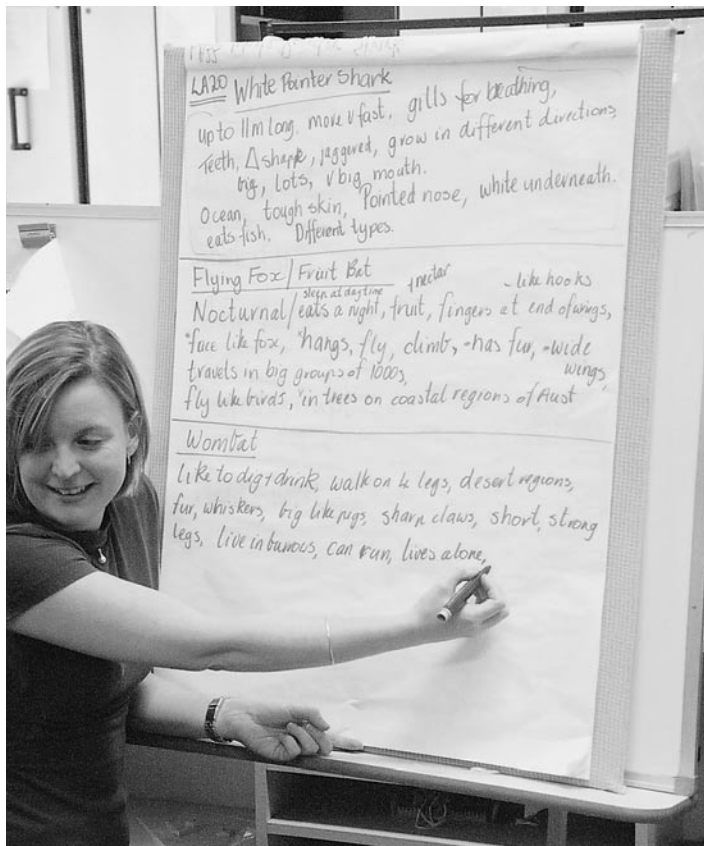 LA20 White Pointer Shark
up to 11m long. move v fast, gills for beathing,
Teeth, Δ shape, jaggered, grow in different directions,
big, lots, v big mouth.
Ocean, tough skin, Pointed nose, white underneath.
eats fish, Different types.
Flying Fox / Fruit Bat
sleep at daytime + nectar - like hooks
Nocturnal / eats a night, fruit, fingers at end of wings,
*face like fox, *hangs, fly, climb, -has fur, -wide
travels in big groups of 1000s, wings,
fly like birds, *in trees on coastal regions of Aust
Wombat
like to dig + drink, walk on 4 legs, desert regions,
fur, whiskers, big like pugs, sharp claws, short, strong
legs, live in burrous, can run, lives alone,